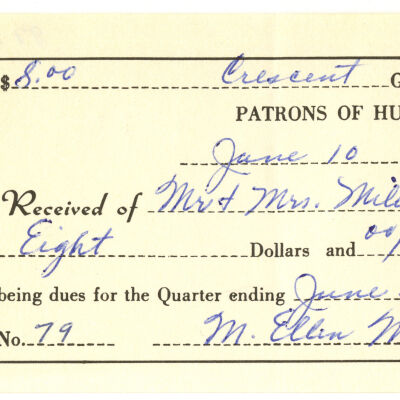 $ 8.00 Crescent G
PATRONS OF HU
June 10
Received of Mr & Mrs. Mil
Eight Dollars and 00/
being dues for the Quarter ending June
No. 79 M. Ellen M